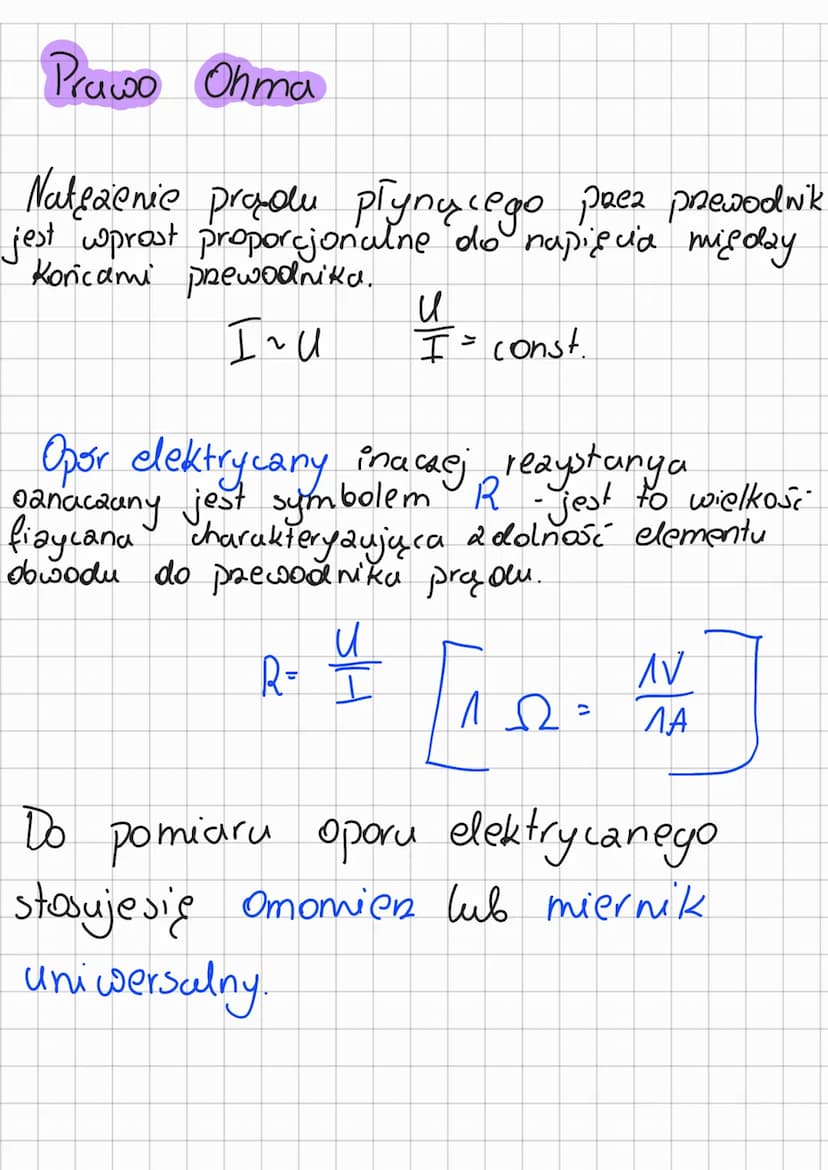 Prawo Ohma
Natężenie prądu płynącego przez przewodnik
jest wprost proporcjonalne do napięcia między
końcami przewodnika.
I ~ U U/I = const.
Opór elektryczny inaczej rezystancja
oznaczany jest symbolem R - jest to wielkość
fizyczna charakteryzująca zdolność elementu
obwodu do przewodnika prądu.
R = U/I [1 Ω = 1V/1A]
Do pomiaru oporu elektrycznego
stosuje się omomierz lub miernik
uniwersalny.